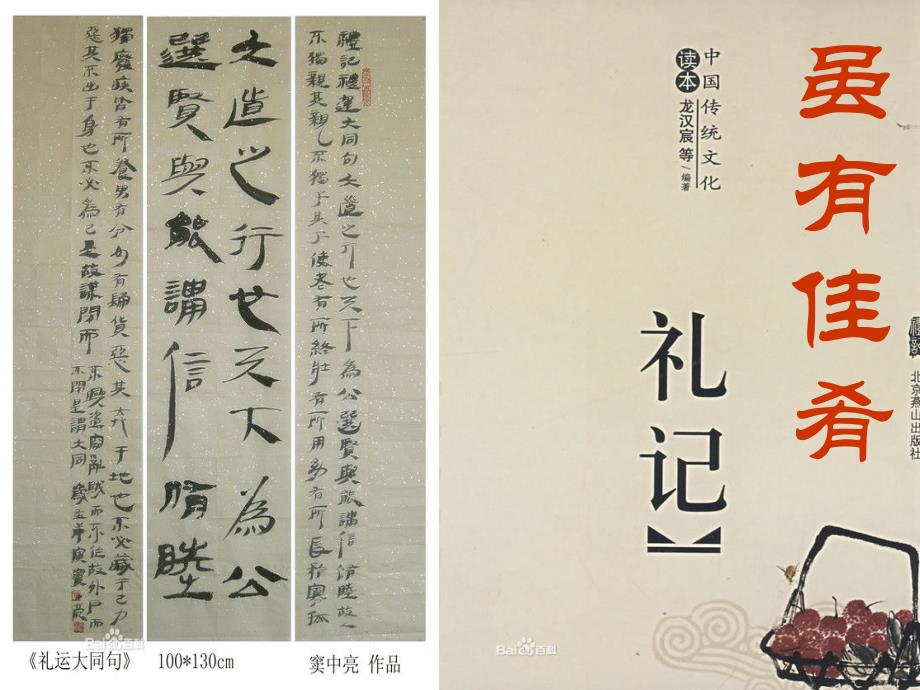 禮記禮運大同句大道之行也天下為公選賢與能講信脩睦故人
不獨親其親不獨子其子使老有所終壯有所用幼有所長矜寡孤
大道之行也天下為公
選賢與能講信脩睦
獨廢疾皆有所養男有分女有歸貨惡其弃于地也不必藏于己力
惡其不出于身也不必為己是故謀閉而
不興盜竊亂賊而不作故外戶而
不閉是謂大同
《礼运大同句》 100*130cm 窦中亮 作品
Bai百科
虽有佳肴
中国传统文化
读本 龙汉宸 等 编著
礼记
北京燕山出版社
Bai百科